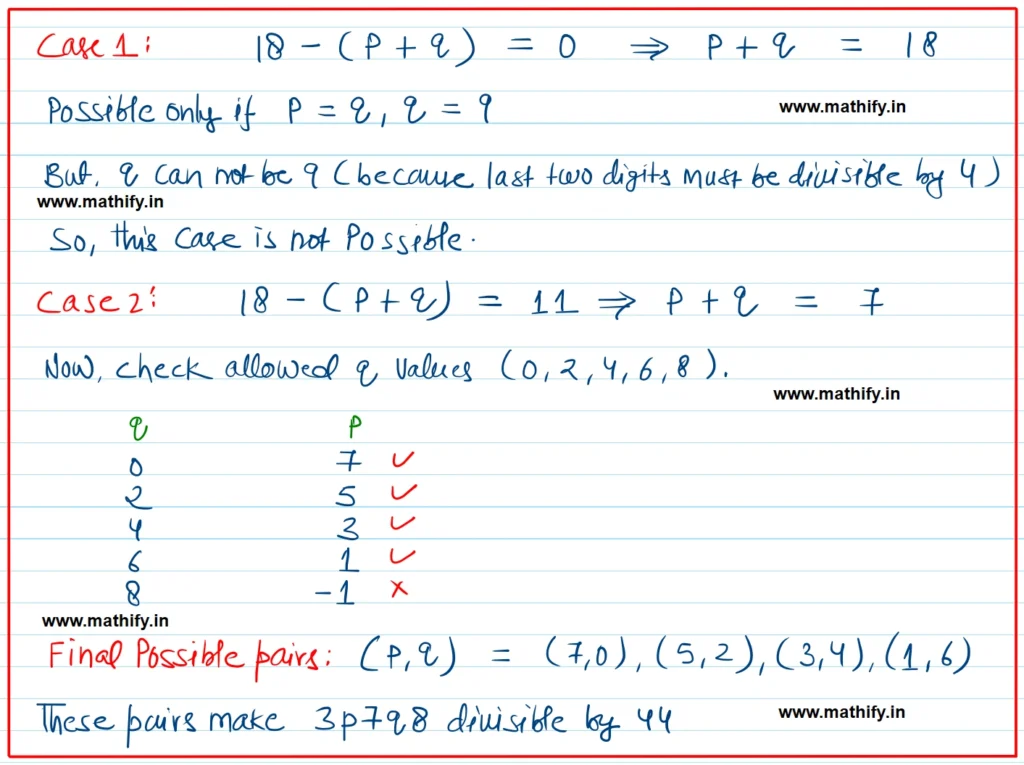 Case 1: 18 - (P + q) = 0 ⇒ P + q = 18
Possible only if P = 9, q = 9
www.mathify.in
But, q can not be 9 (because last two digits must be divisible by 4)
www.mathify.in
So, this case is not Possible.
Case 2: 18 - (P + q) = 11 ⇒ P + q = 7
Now, check allowed q values (0, 2, 4, 6, 8).
www.mathify.in
q P
0 7 ✓
2 5 ✓
4 3 ✓
6 1 ✓
8 -1 ×
www.mathify.in
Final Possible pairs: (P, q) = (7,0), (5,2), (3,4), (1,6)
These pairs make 3p7q8 divisible by 44
www.mathify.in